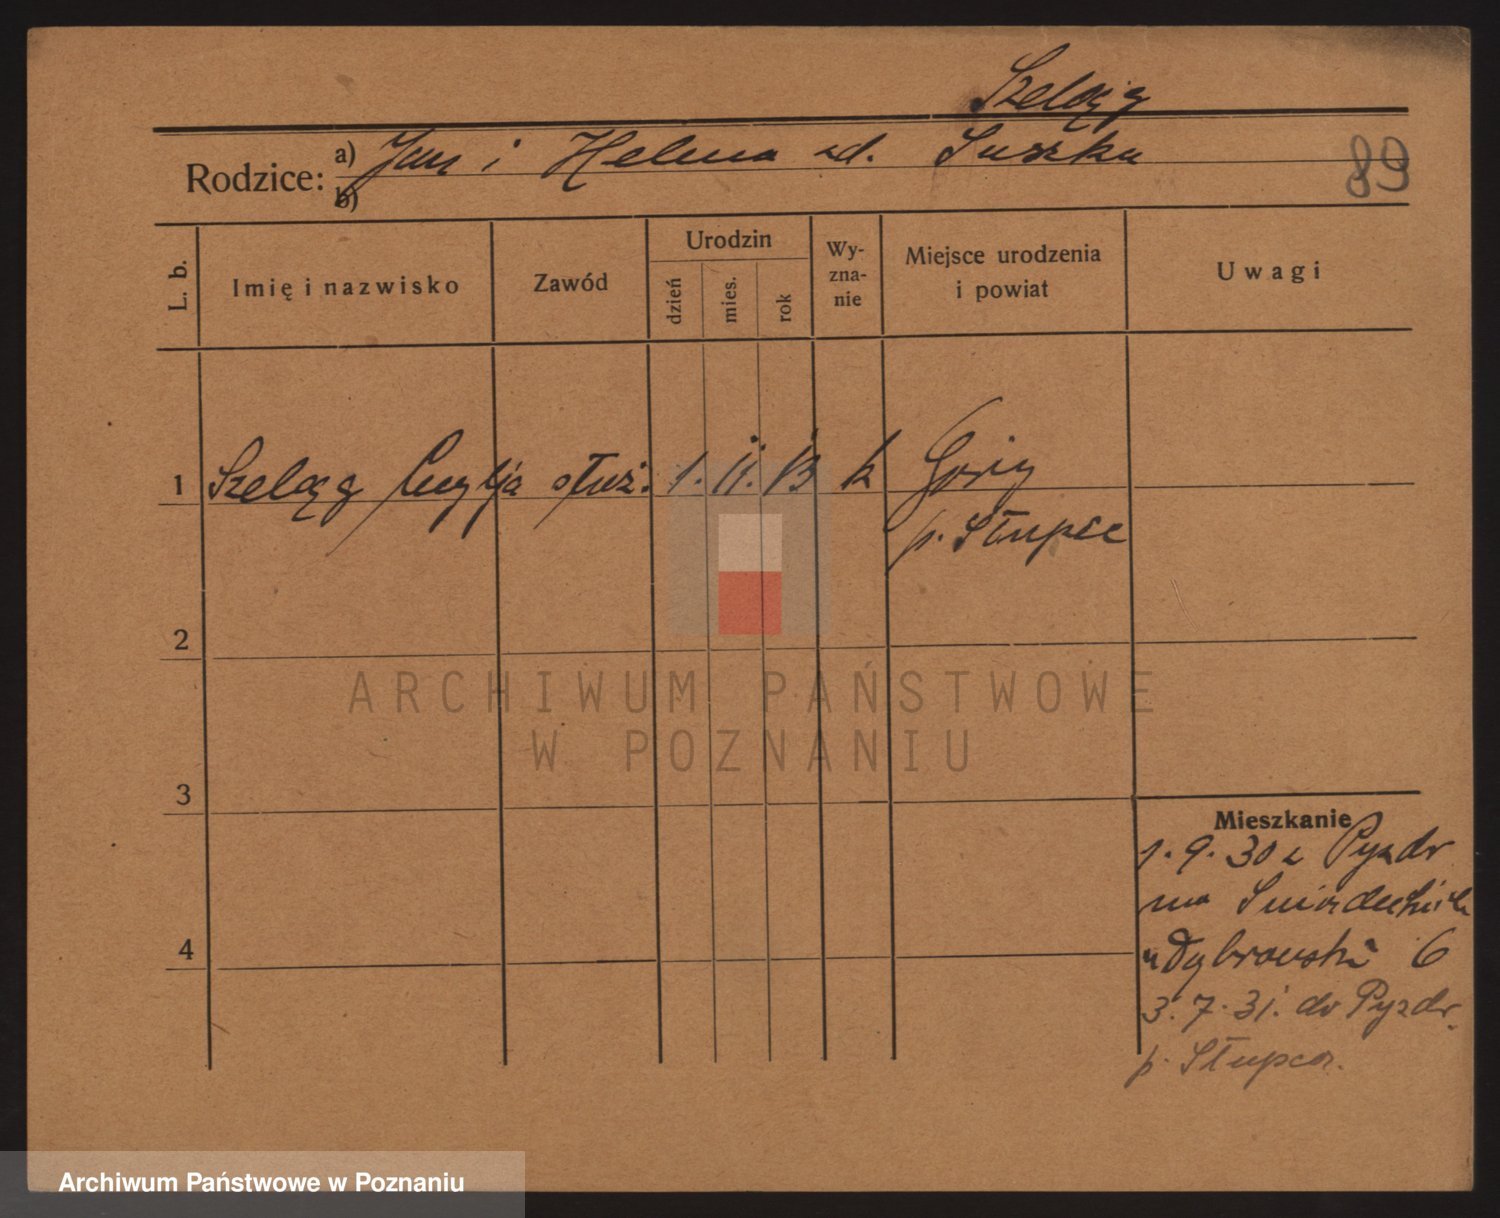 Szeląg
Rodzice: a) Jan i Helena zd. Suszka
b)
89
L. b.
Imię i nazwisko
Zawód
Urodzin
dzień
mies.
rok
Wy-
zna-
nie
Miejsce urodzenia
i powiat
Uwagi
1 Szeląg Cecylja służ. 1. II. 13 k
p. Słupce
2
3
4
Mieszkanie
1. 9. 30 z Pyzdr
na
Dąbrowski 6
3. 7. 31. do Pyzdr.
p. Słupca.
ARCHIWUM PAŃSTWOWE
W POZNANIU
Archiwum Państwowe w Poznaniu